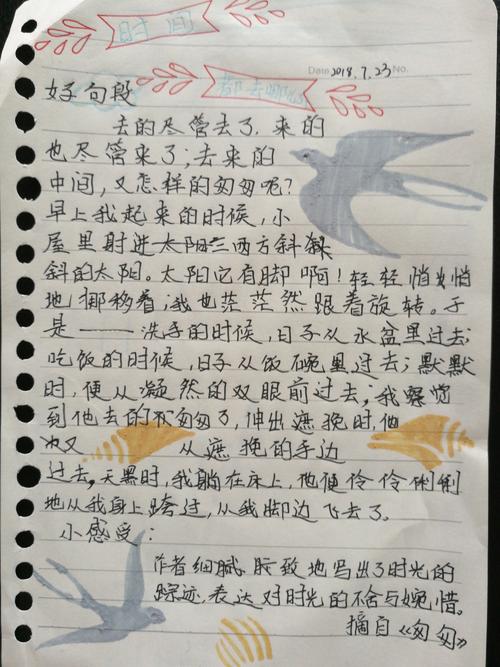 时间
Date 2018.7.23 No.
都去哪
好句段
去的尽管去了,来的
也尽管来了;去来的
中间,又怎样的匆匆呢?
早上我起来的时候,小
屋里射进太阳两方斜斜
斜的太阳。太阳它有脚啊!轻轻悄悄
地挪移着;我也茫茫然跟着旋转。于
是——洗手的时候,日子从水盆里过去;
吃饭的时候,日子从饭碗里过去;默默
时,便从凝然的双眼前过去;我察觉
到他去的匆匆了,伸出遮挽时,他
又 从遮挽的手边
过去,天黑时,我躺在床上,他便伶伶俐俐
地从我身上跨过,从我脚边飞去了。
小感受:
作者细腻 致地写出了时光的
踪迹,表达对时光的不舍与婉惜。
摘自《匆匆》